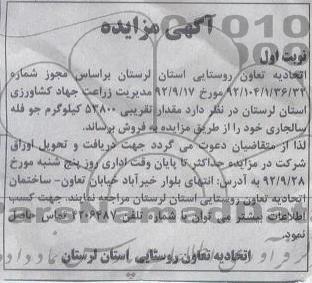 آگهی مزایده
نوبت اول
اتحادیه تعاون روستایی استان لرستان براساس مجوز شماره
۹۲/۱۰۴/۱/۳۶/۳۲ مورخ ۹۲/۹/۱۷ مدیریت زراعت جهاد کشاورزی
استان لرستان در نظر دارد مقدار تقریبی ۵۳۸۰۰ کیلوگرم جو فله
سالجاری خود را از طریق مزایده به فروش برساند.
لذا از متقاضیان دعوت می گردد جهت دریافت و تحویل اوراق
شرکت در مزایده حداکثر تا پایان وقت اداری روز پنج شنبه مورخ
۹۲/۹/۲۸ به آدرس: انتهای بلوار خیرآباد خیابان تعاون- ساختمان
اتحادیه تعاون روستایی استان لرستان مراجعه نمایند. جهت کسب
اطلاعات بیشتر می توان با شماره تلفن ۴۲۰۶۴۸۷ تماس حاصل
نمود.
اتحادیه تعاون روستایی استان لرستان